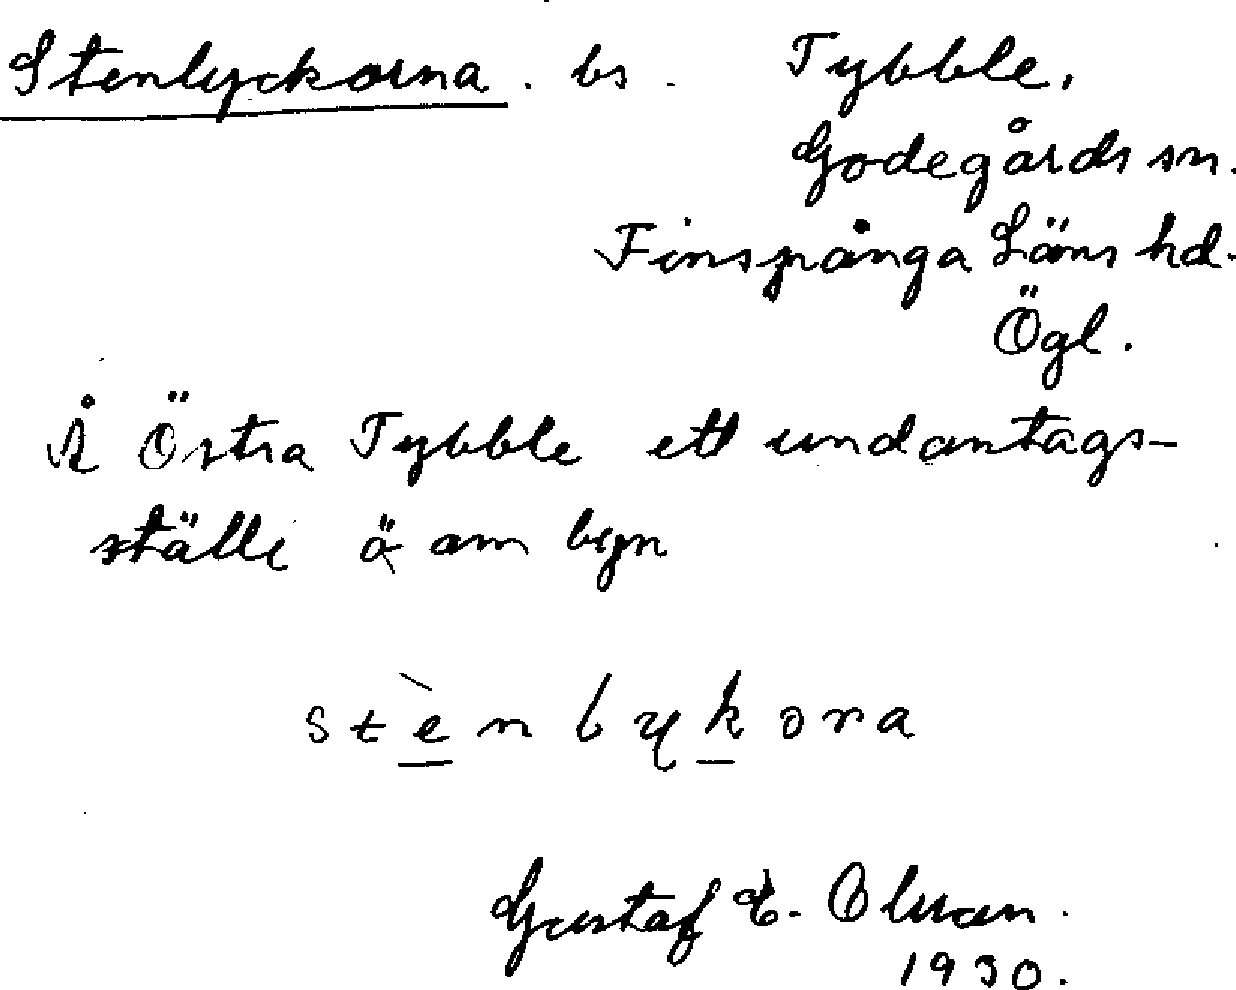 Stenlyckorna. bs. Tybble,
Godegårds sn.
Finspånga Läns hd.
Ögl.
Å Östra Tybble ett undantags-
ställe
stènlykora
Gustaf E. Olsson.
1930.